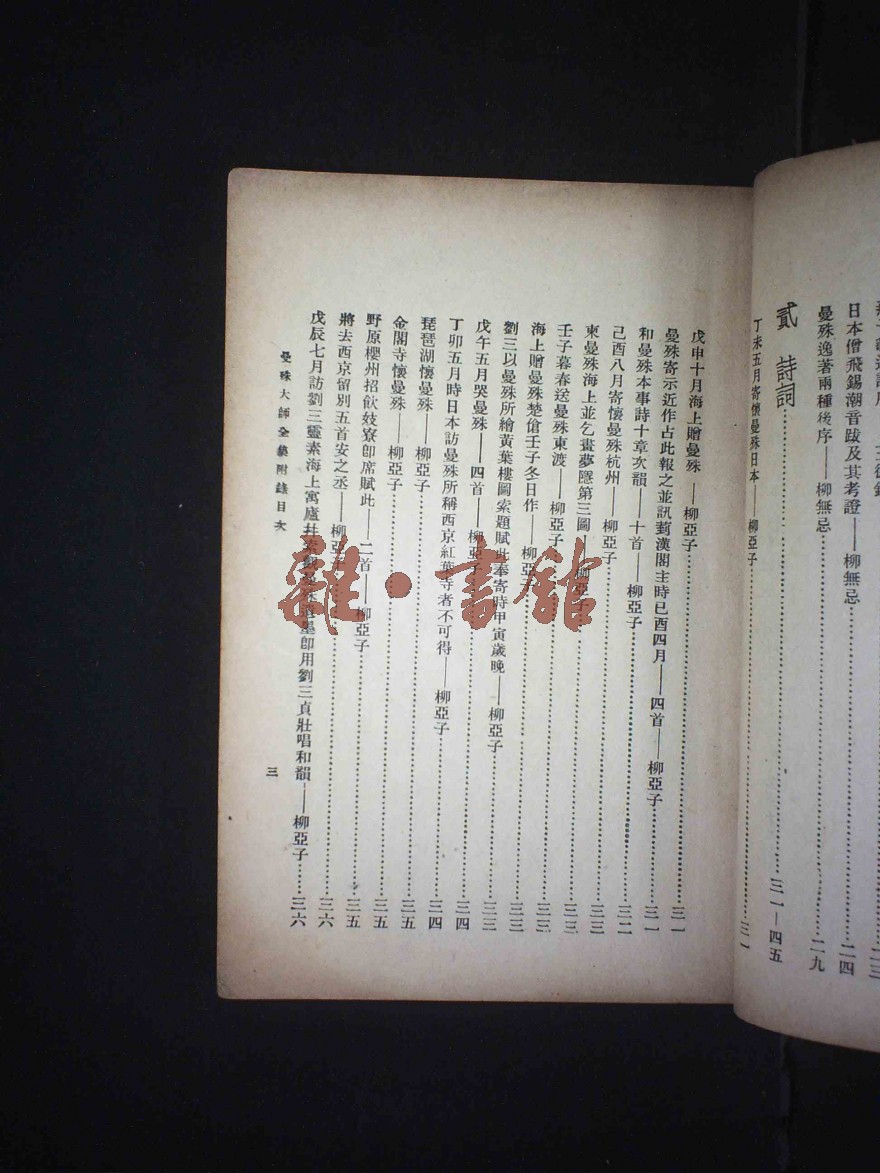 日本僧飛錫潮音跋及其考證——柳無忌…………二四
曼殊逸著兩種後序——柳無忌…………二九
貳 詩詞…………三一—四五
丁未五月寄懷曼殊日本——柳亞子…………三一
戊申十月海上贈曼殊——柳亞子…………三一
曼殊寄示近作占此報之並訊䓪漢閣主時已酉四月——四首——柳亞子…………三一
和曼殊本事詩十章次韻——十首——柳亞子…………三二
己酉八月寄懷曼殊杭州——柳亞子…………三三
柬曼殊海上並乞畫夢隱第三圖——柳亞子…………三三
壬子暮春送曼殊東渡——柳亞子…………三三
海上贈曼殊楚傖壬子冬日作——柳亞子…………三三
劉三以曼殊所繪黃葉樓圖索題賦此奉寄時甲寅歲晚——柳亞子…………三三
戊午五月哭曼殊——四首——柳亞子…………三四
丁卯五月時日本訪曼殊所稱西京紅葉寺者不可得——柳亞子…………三四
琵琶湖懷曼殊——柳亞子…………三五
金閣寺懷曼殊——柳亞子…………三五
野原櫻州招飲妓寮卽席賦此——二首——柳亞子…………三五
將去西京留別五首安之丞——柳亞子…………三六
戊辰七月訪劉三靈素海上寓廬幷索觀曼殊遺墨卽用劉三貞壯唱和韻——柳亞子……三六
曼殊大師全集附錄目次
三
雜·書館